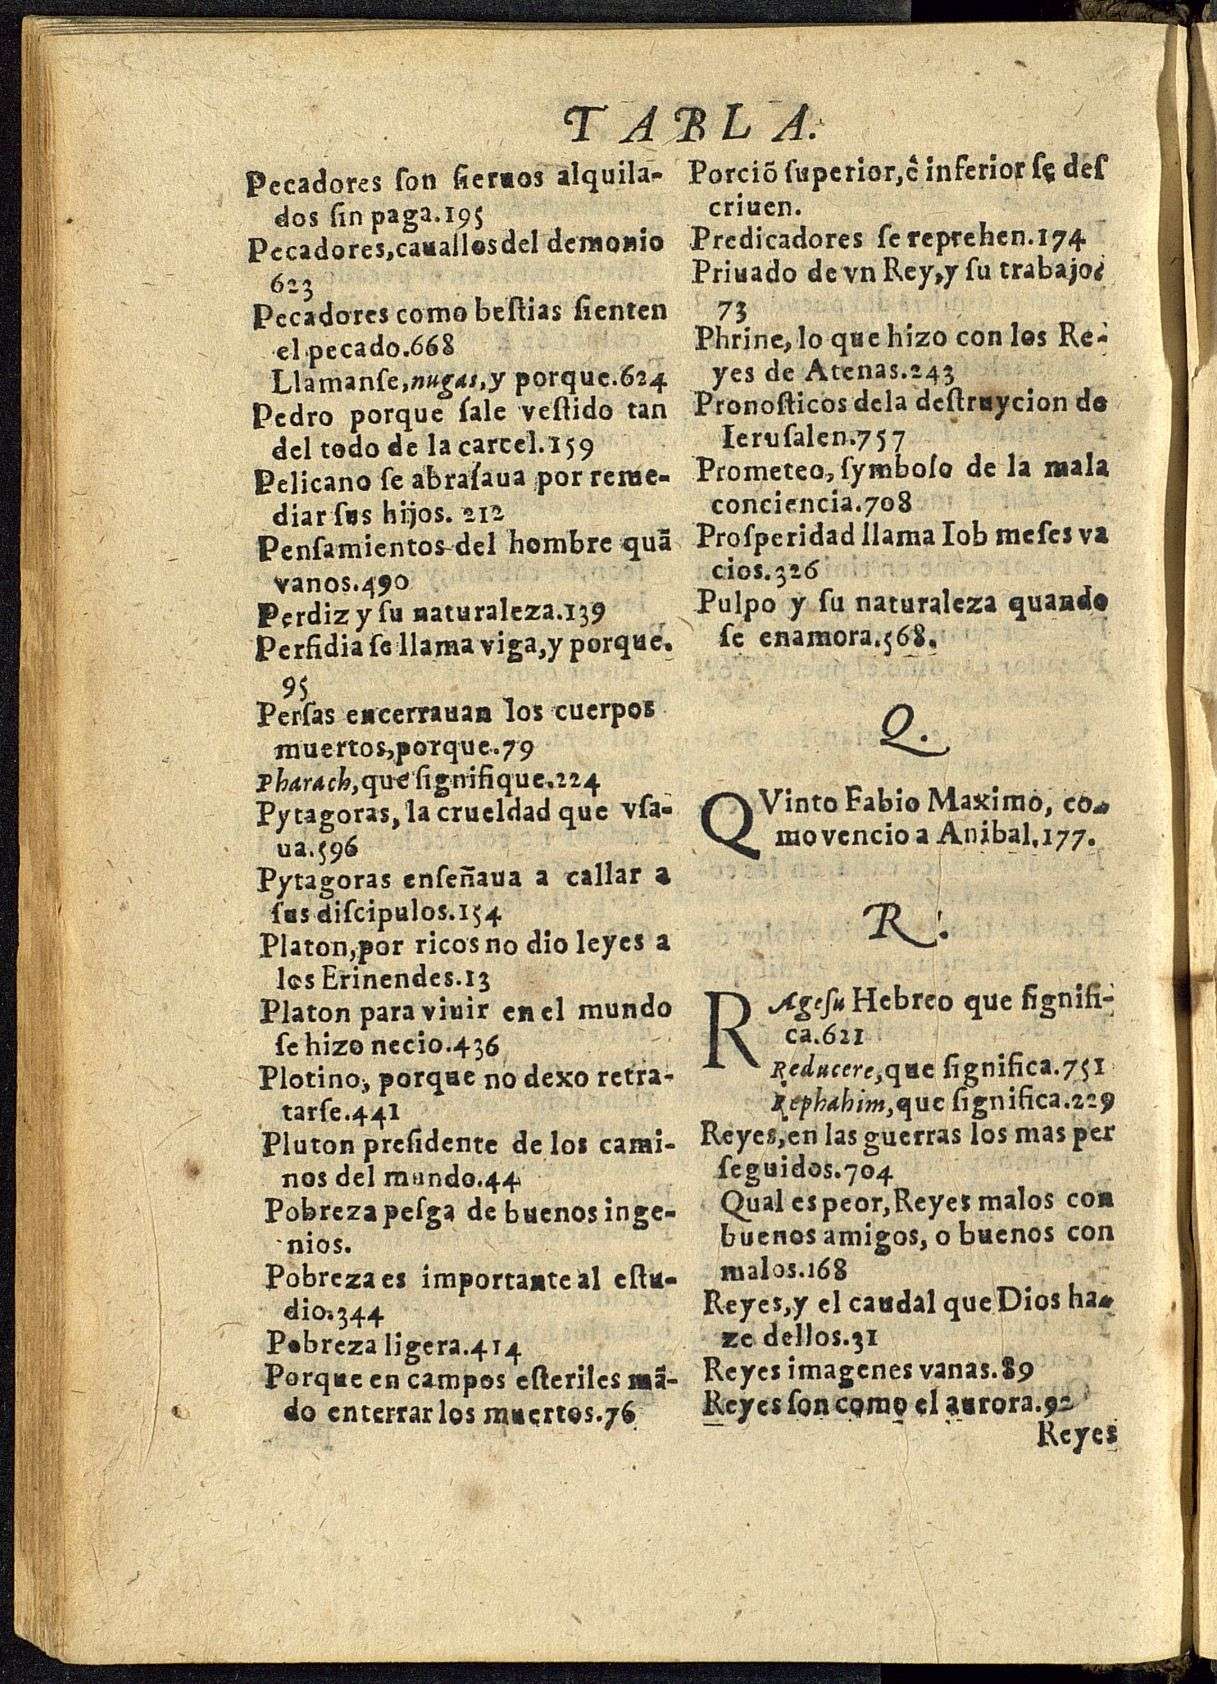 TABLA.
Pecadores ſon ſieruos alquila-
dos ſin paga.195
Pecadores,cauallos del demonio
623
Pecadores como beſtias ſienten
el pecado.668
Llamanſe,nugas,y porque.624
Pedro porque ſale veſtido tan
del todo de la carcel.159
Pelicano ſe abraſaua por reme-
diar ſus hijos. 212
Penſamientos del hombre quã
vanos.490
Perdiz y ſu naturaleza.139
Perfidia ſe llama viga,y porque.
95
Perſas encerrauan los cuerpos
muertos,porque.79
Pharach,que ſignifique.224
Pytagoras, la crueldad que vſa-
ua.596
Pytagoras enſeñaua a callar a
ſus diſcipulos.154
Platon,por ricos no dio leyes a
los Erinendes.13
Platon para viuir en el mundo
ſe hizo necio.436
Plotino, porque no dexo retra-
tarſe.441
Pluton preſidente de los cami-
nos del mundo.44
Pobreza peſga de buenos inge-
nios.
Pobreza es importante al eſtu-
dio.344
Pobreza ligera.414
Porque en campos eſteriles mã-
do enterrar los muertos.76
Porciõ ſuperior,ê inferior ſe deſ
criuen.
Predicadores ſe reprehen.174
Priuado de vn Rey,y ſu trabajo.
73
Phrine, lo que hizo con los Re-
yes de Atenas.243
Pronoſticos dela deſtruycion de
Ieruſalen.757
Prometeo, ſymboſo de la mala
conciencia.708
Proſperidad llama Iob meſes va
cios.326
Pulpo y ſu naturaleza quando
ſe enamora.568.
Q.
QVinto Fabio Maximo, co-
mo vencio a Anibal.177.
R.
RAgeſu Hebreo que ſignifi-
ca.621
Reducere,que ſignifica.751
Rephahim,que ſignifica.229
Reyes,en las guerras los mas per
ſeguidos.704
Qual es peor, Reyes malos con
buenos amigos, o buenos con
malos.168
Reyes,y el caudal que Dios ha-
ze dellos.31
Reyes imagenes vanas.89
Reyes ſon como el aurora.92
Reyes